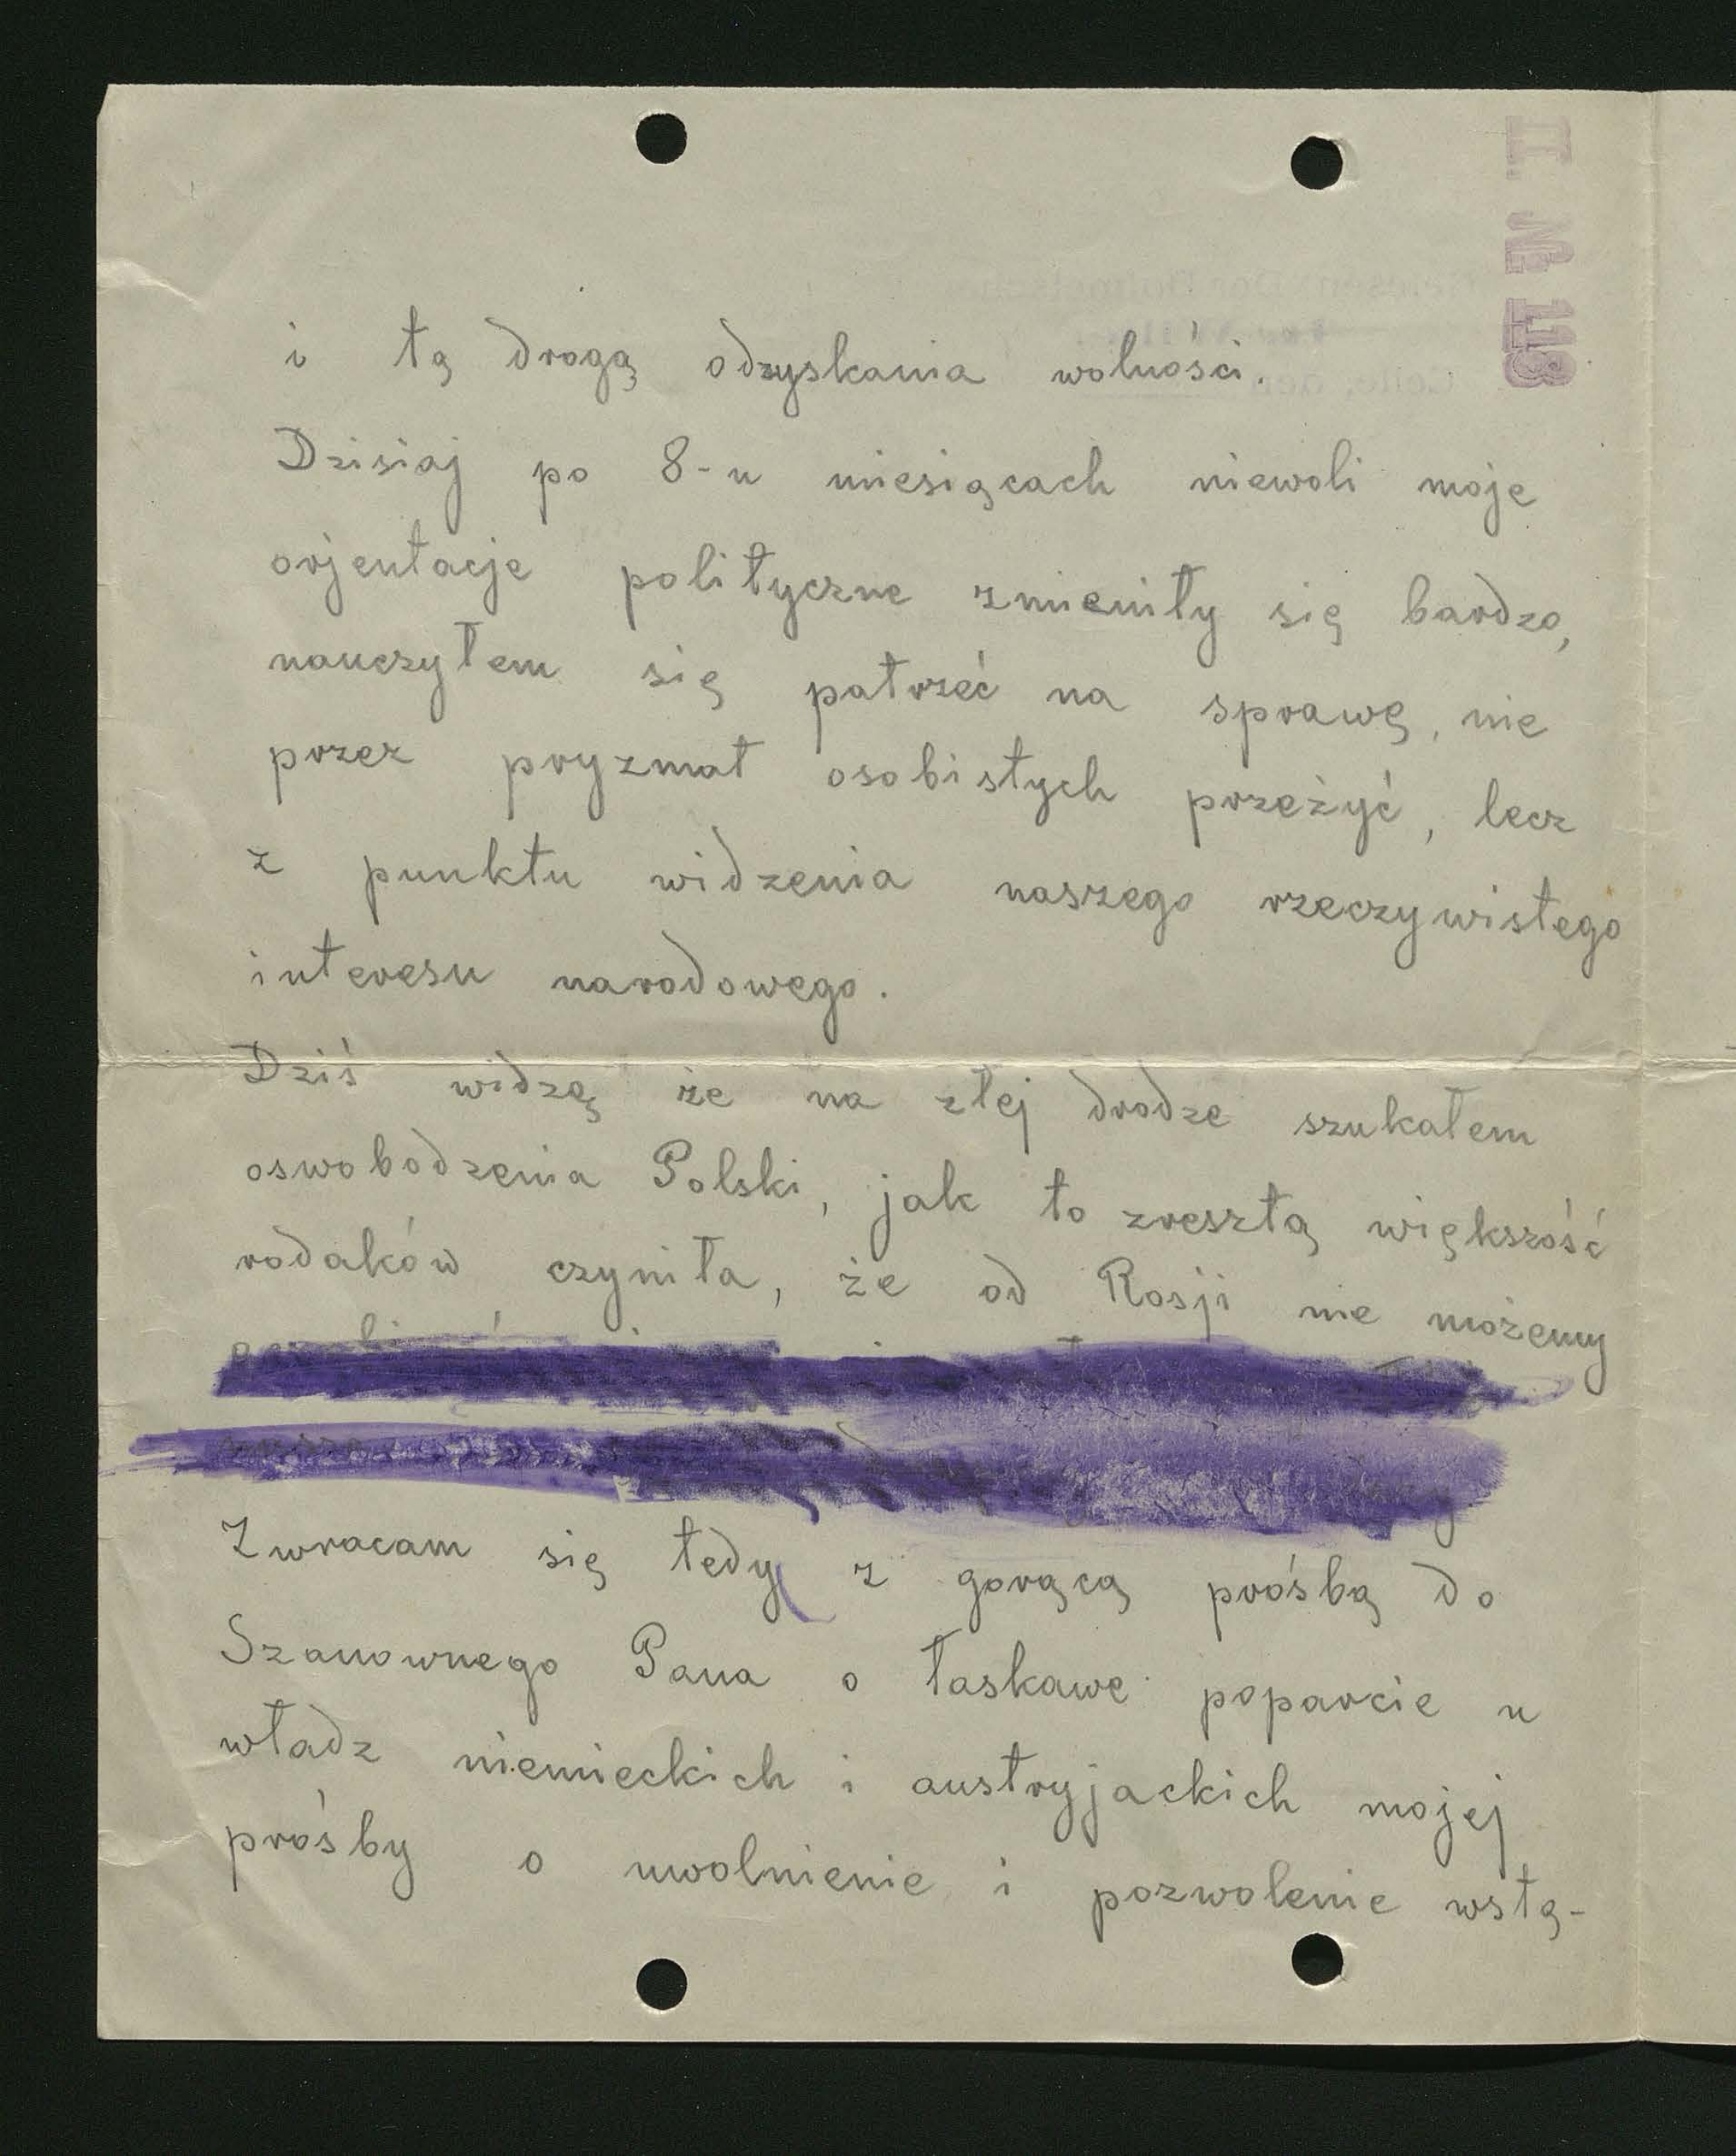 II. № 113
i tą drogą odzyskania wolności.
Dzisiaj po 8-u miesiącach niewoli moje
orjentacje polityczne zmieniły się bardzo,
nauczyłem się patrzeć na sprawę, nie
przez pryzmat osobistych przeżyć, lecz
z punktu widzenia naszego rzeczywistego
interesu narodowego.
Dziś widzę że na złej drodze szukałem
oswobodzenia Polski, jak to zresztą większość
rodaków czyniła, że od Rosji nie możemy
Zwracam się tedy z gorącą prośbą do
Szanownego Pana o łaskawe poparcie u
władz niemieckich i austryjackich mojej
prośby o uwolnienie i pozwolenie wstą-